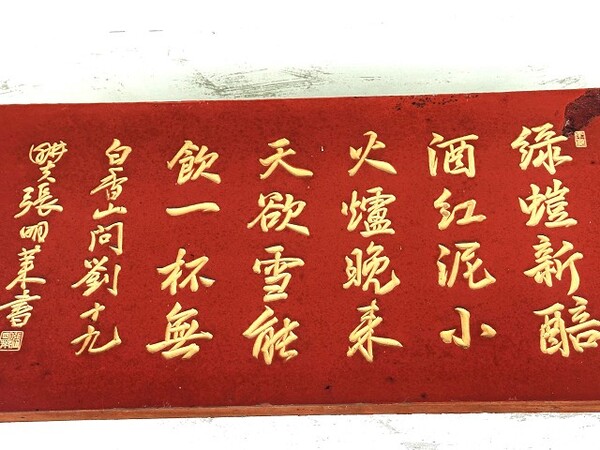 綠螘新醅
酒紅泥小
火爐晚来
天欲雪能
飲一杯無
白香山問劉十九
張明萊書